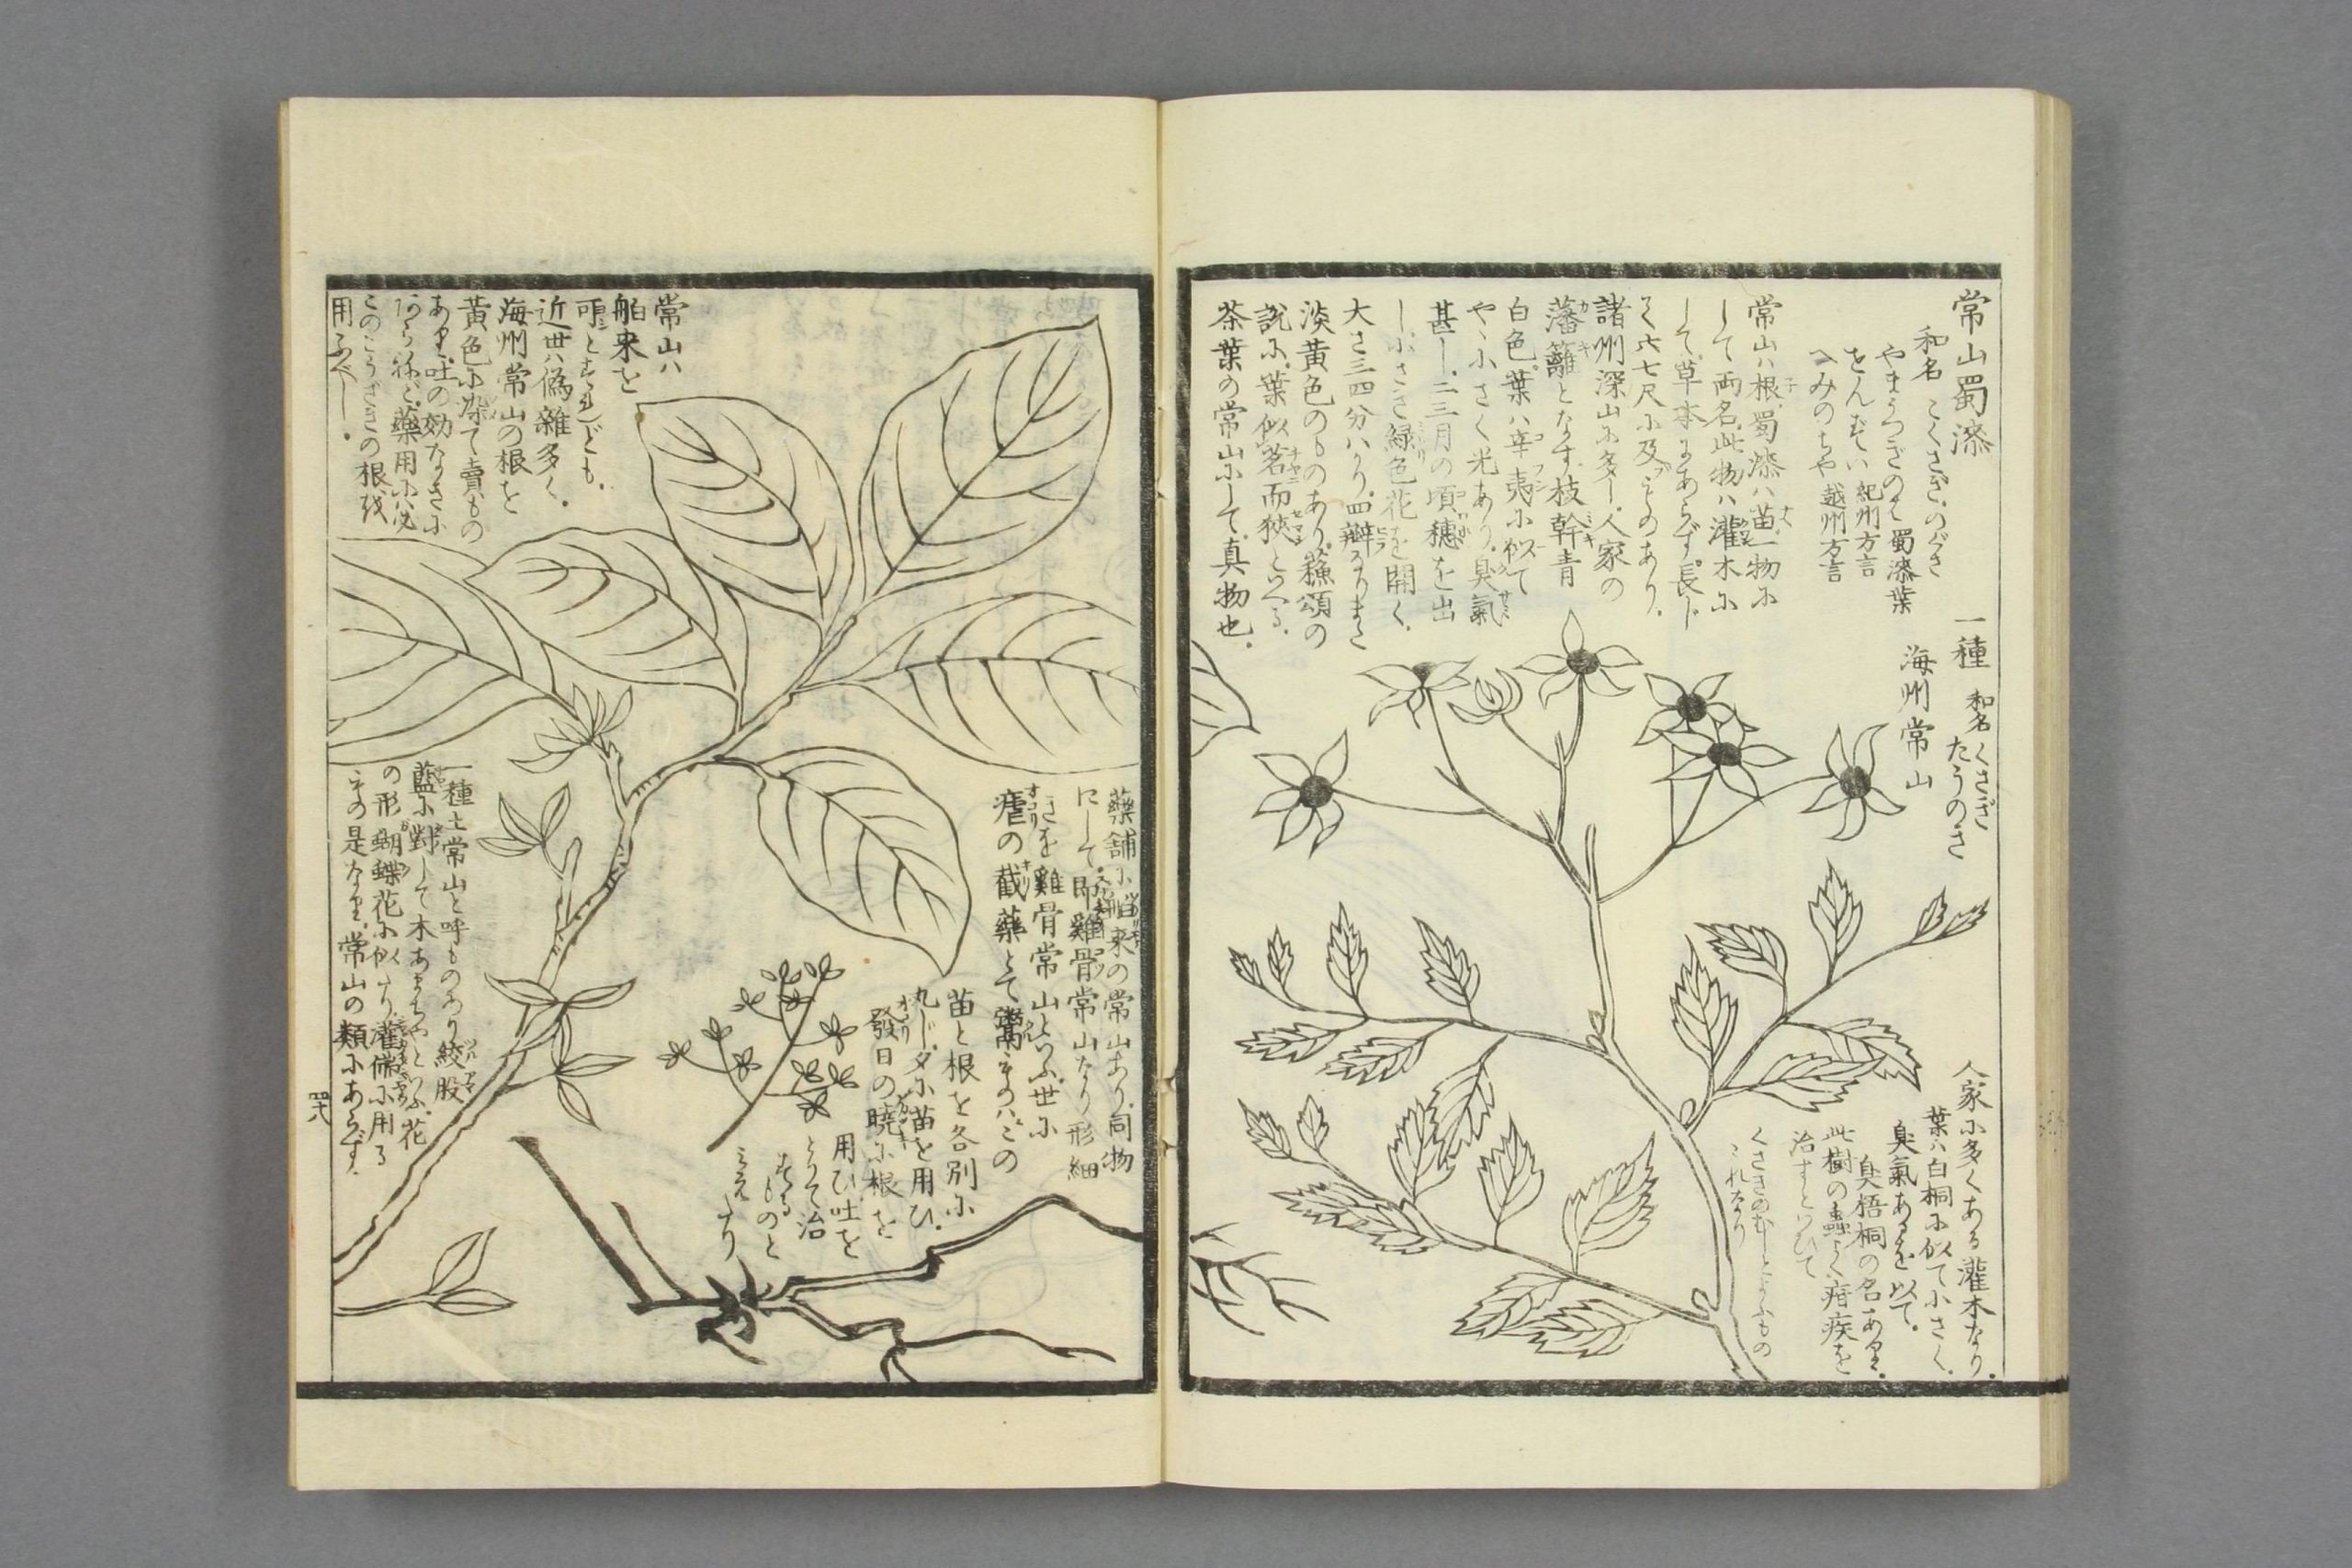 常山蜀漆
和名 こくさぎ のぐさ
やまうつぎのは 蜀漆葉
をんむてい 紀州方言
へみのちや 越州方言
常山ハ根蜀漆ハ苗一物に
して両名此物ハ灌木に
して草本にあらず長じ
て六七尺に及ぶものあり
諸州深山に多し人家の
藩籬となす枝幹青
白色葉ハ辛夷に似て
やゝ小さく光あり臭氣
甚し二三月の頃穗を出
し小さき緑色花を開く
大さ三四分ハかり四瓣なりまた
淡黄色のものあり蘓頌の
説に葉似茗而狹といへる
茶葉の常山にして真物也
一種 和名 くさぎ
たうのき
海州常山
人家に多くある灌木なり
葉ハ白桐に似て小さく
臭氣あるを以て
臭梧桐の名あり
此樹の蟲よく疳疾を
治すといひて
くさきのむしといふもの
これなり
藥舗に舶来の常山あり同物
にして即雞骨常山なり形細
きを雞骨常山といふ世に
瘧の截藥とて鬻ものハこの
苗と根を各別に
丸じ夕に苗を用ひ
發日の曉に根を
用ひ吐を
とりて治
するものと
みえたり
常山ハ
舶来を
頂とすれども
近世ハ偽雑多く
海州常山の根を
黄色に染て賣もの
あり吐の効なきに
あらねど藥用にハ必
このこくさぎの根を
用ふべし
一種土常山と呼ものあり絞股
藍に對して木あまちやといふ花
の形蝴蝶花に似たり灌佛に用る
もの是なり常山の類にあらず
四十八